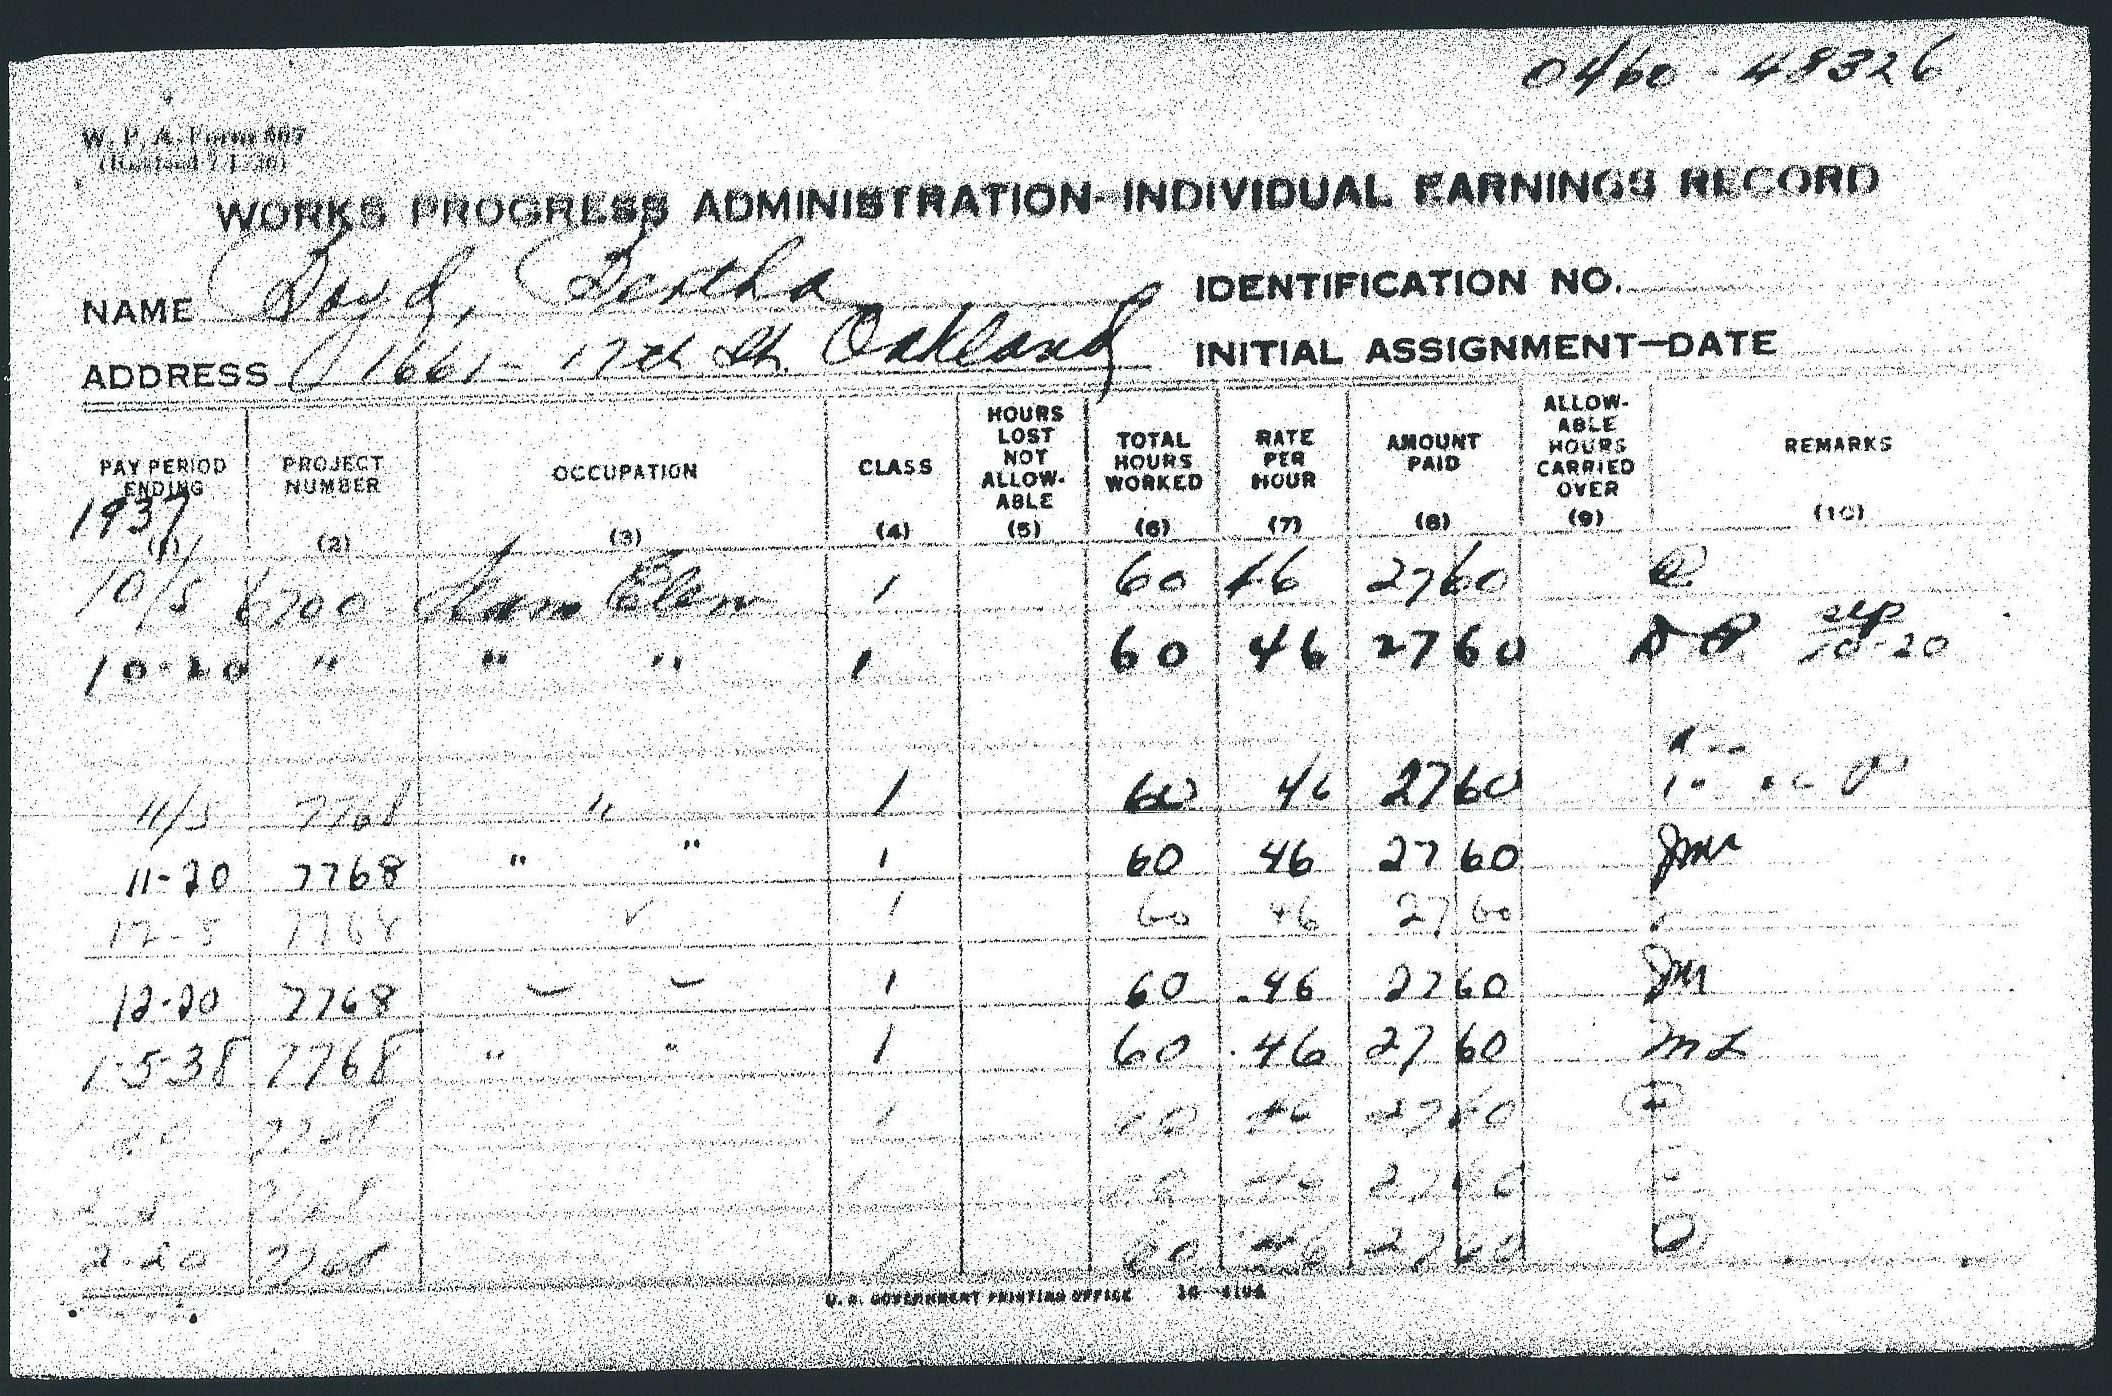 0460-48326
W. P. A. Form 807
(Revised 7-1-36)
WORKS PROGRESS ADMINISTRATION-INDIVIDUAL EARNINGS RECORD
NAME Boyd, Bertha IDENTIFICATION NO.
ADDRESS 1661-17th St. Oakland INITIAL ASSIGNMENT—DATE
PAY PERIOD ENDING 1937 (1) PROJECT NUMBER (2) OCCUPATION (3) CLASS (4) HOURS LOST NOT ALLOW-ABLE (5) TOTAL HOURS WORKED (6) RATE PER HOUR (7) AMOUNT PAID (8) ALLOW-ABLE HOURS CARRIED OVER (9) REMARKS (10)
10/5 6700 1 60 46 27 60
10-20 " " " 1 60 46 27 60 10-20
11/5 7768 " 1 60 46 27 60
11-20 7768 " " 1 60 46 27 60 JM
12-5 7768 1 60 46 27 60
12-20 7768 1 60 .46 27 60 JM
1-5-38 7768 " " 1 60 .46 27 60 ML
20 7768 1 60 46 27 60
7768 1 60 46 27 60
2-20 7768 1 60 46 27 60
U. S. GOVERNMENT PRINTING OFFICE